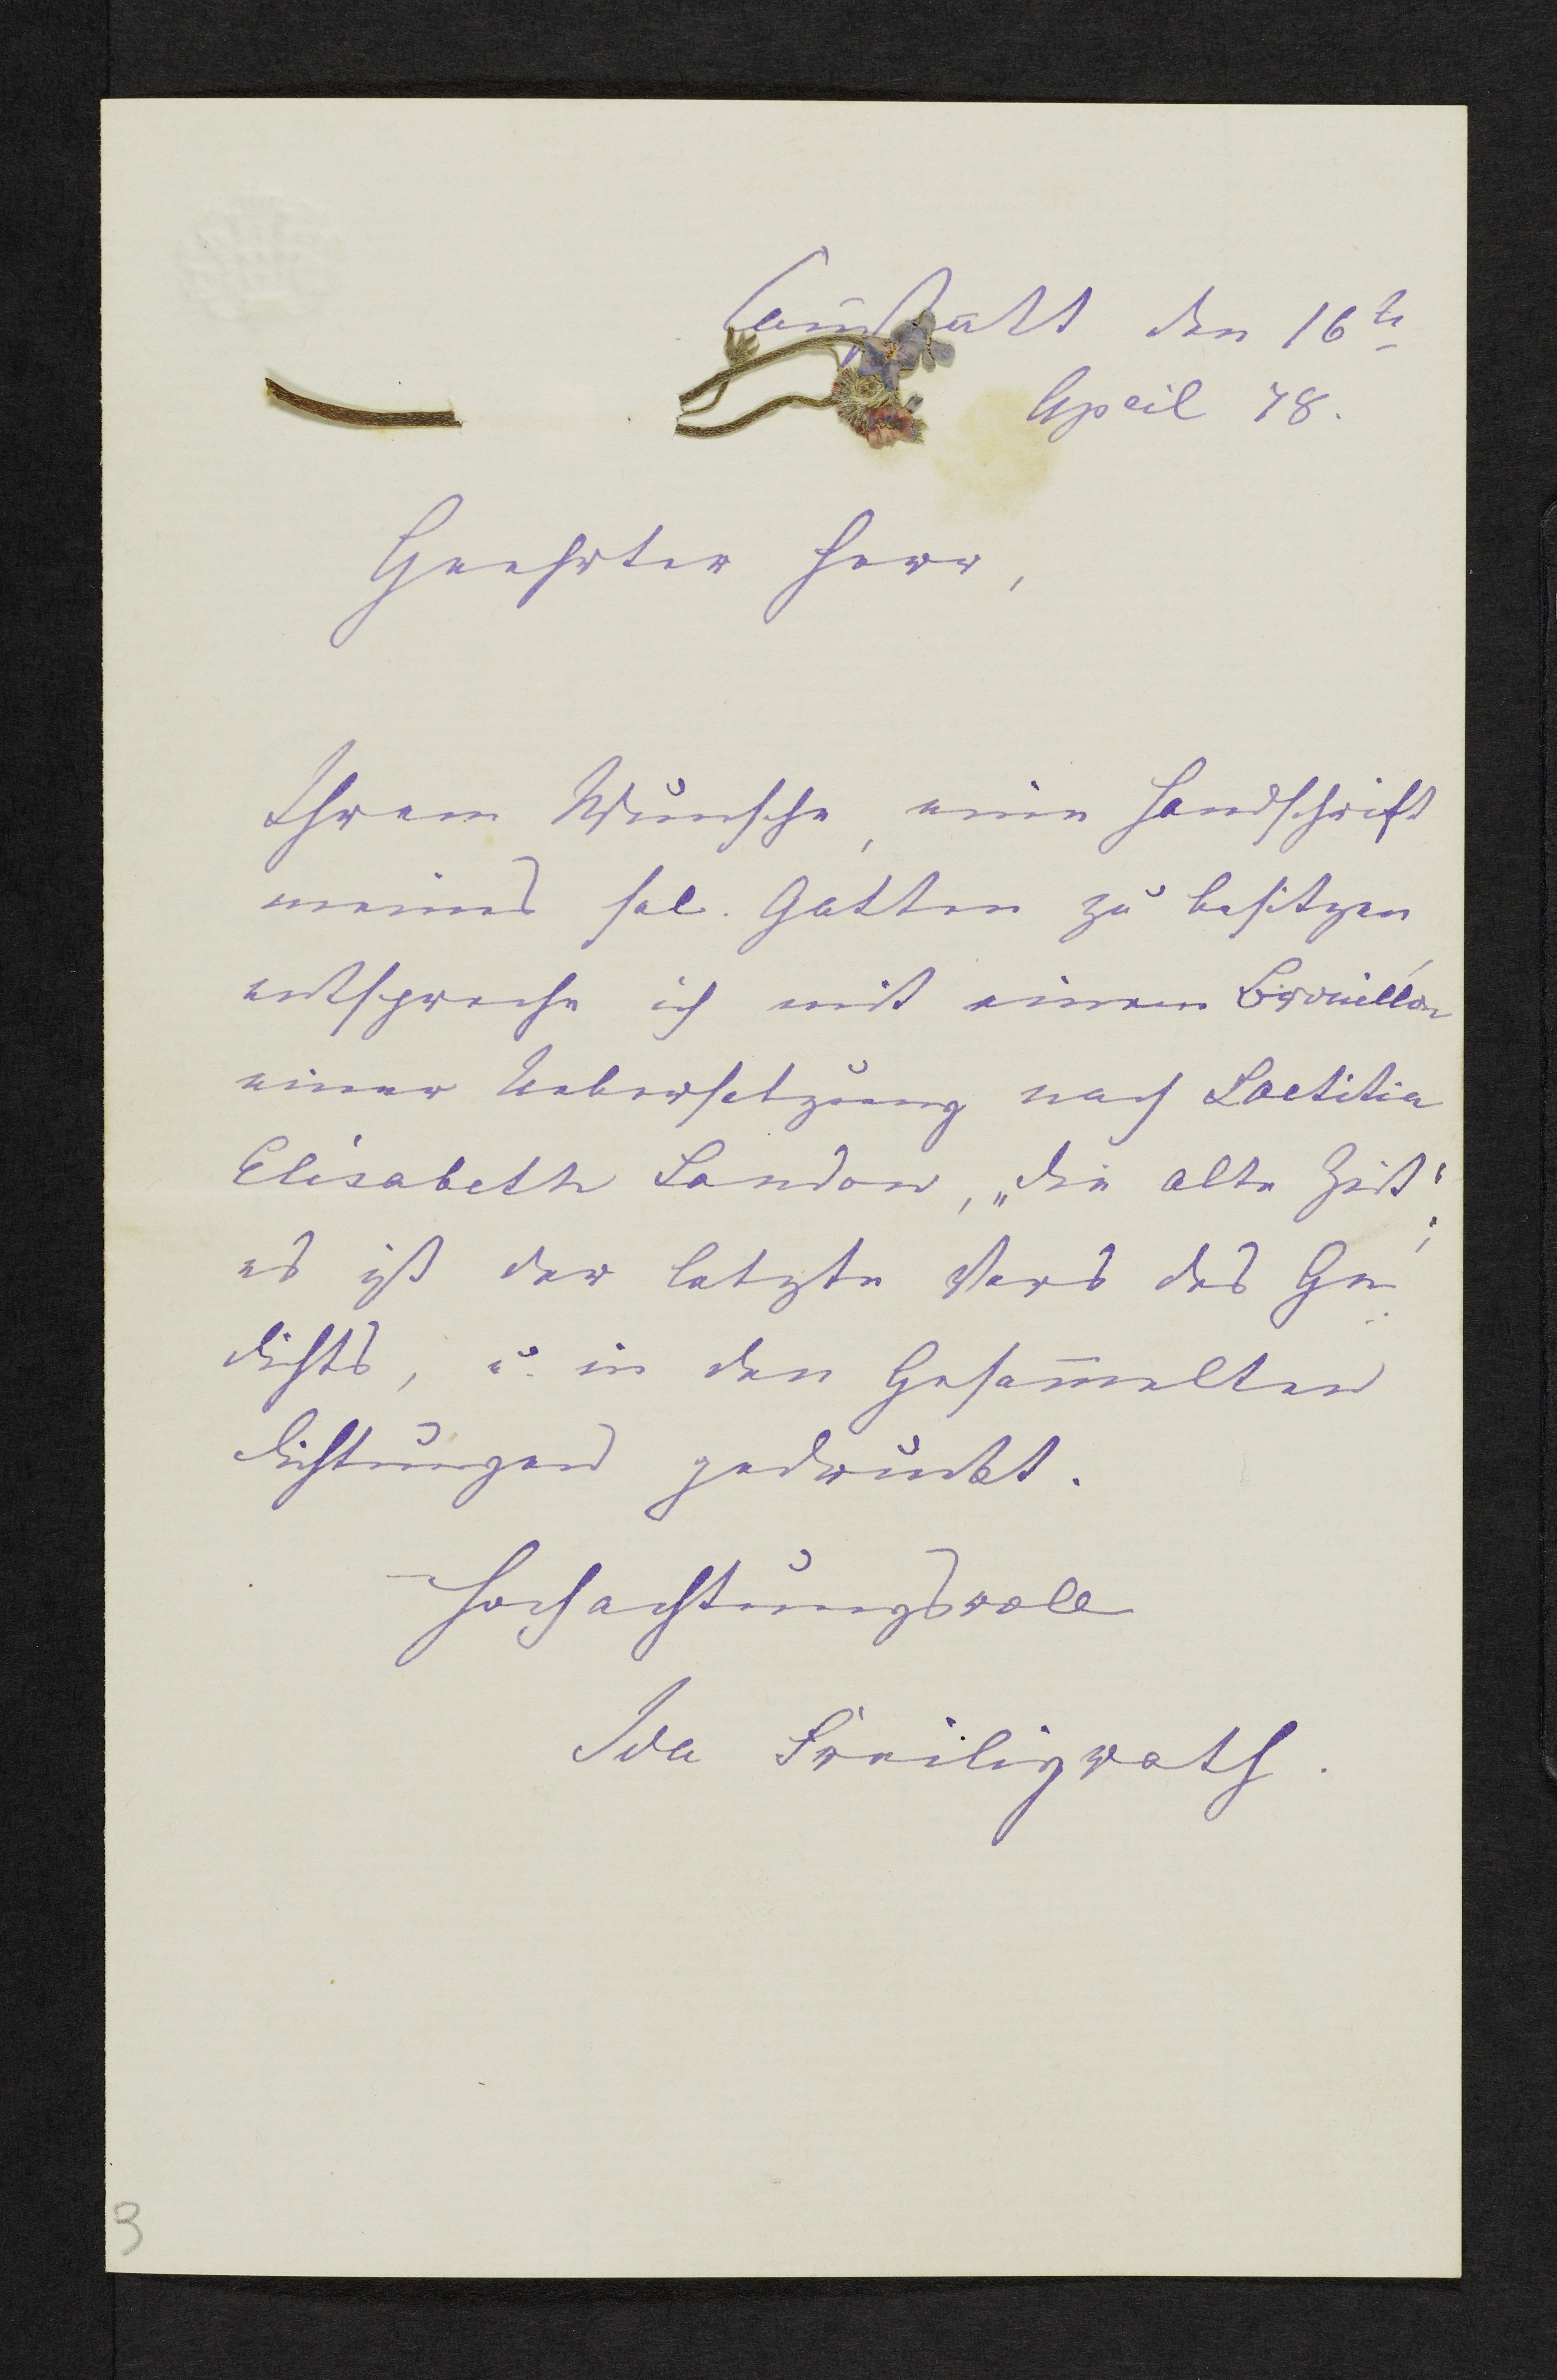 Cannstatt den 16te
April 78.
Geehrter Herr,
Ihrem Wunsche, eine Handschrift
meines sel. Gatten zu besitzen
entspreche ich mit einem Brouillon
einer Uebersetzung nach Laetitia
Elisabeth Landon, „die alte Zeit";
es ist der letzte Vers des Ge-
dichts, u. in den Gesam̅elten
Dichtungen gedruckt.
Hochachtungsvoll
Ida Freiligrath.
3